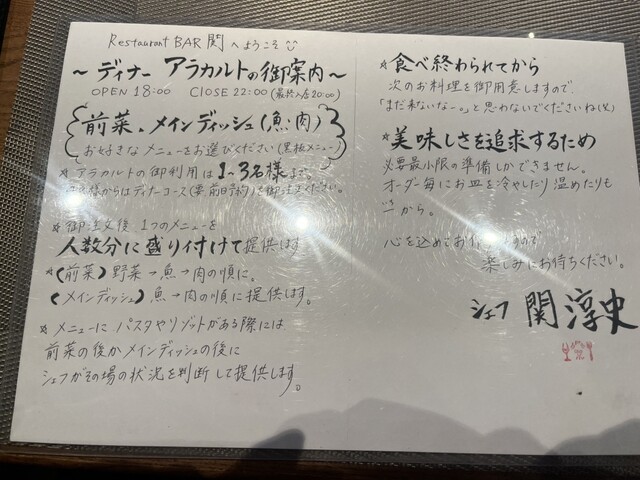 Restaurant BAR 関 へようこそ
〜ディナー アラカルトの御案内〜
OPEN 18:00 CLOSE 22:00 (最終入店20:00)
前菜、メインディッシュ(魚・肉)
お好きなメニューをお選びください(黒板メニュー)
☆ アラカルトの御利用は1〜3名様まで。
様からはディナーコース(要前日予約)を御注文ください。
☆ 御注文後 1つのメニューを
人数分に盛り付けて提供します
☆(前菜) 野菜→魚→肉の順に。
(メインディッシュ) 魚→肉の順に提供します。
☆ メニューに パスタやリゾットがある際には
前菜の後かメインディッシュの後に
シェフがその場の状況を判断して提供します。
☆ 食べ終わられてから
次のお料理を御用意しますので、
「まだ来ないなー。」と思わないでくださいね(笑)
☆ 美味しさを追求するため
必要最小限の準備しかできません。
オーダー毎にお皿を冷やしたり温めたりも
から。
心を込めてお すので
楽しみにお待ちください。
シェフ 関 淳史